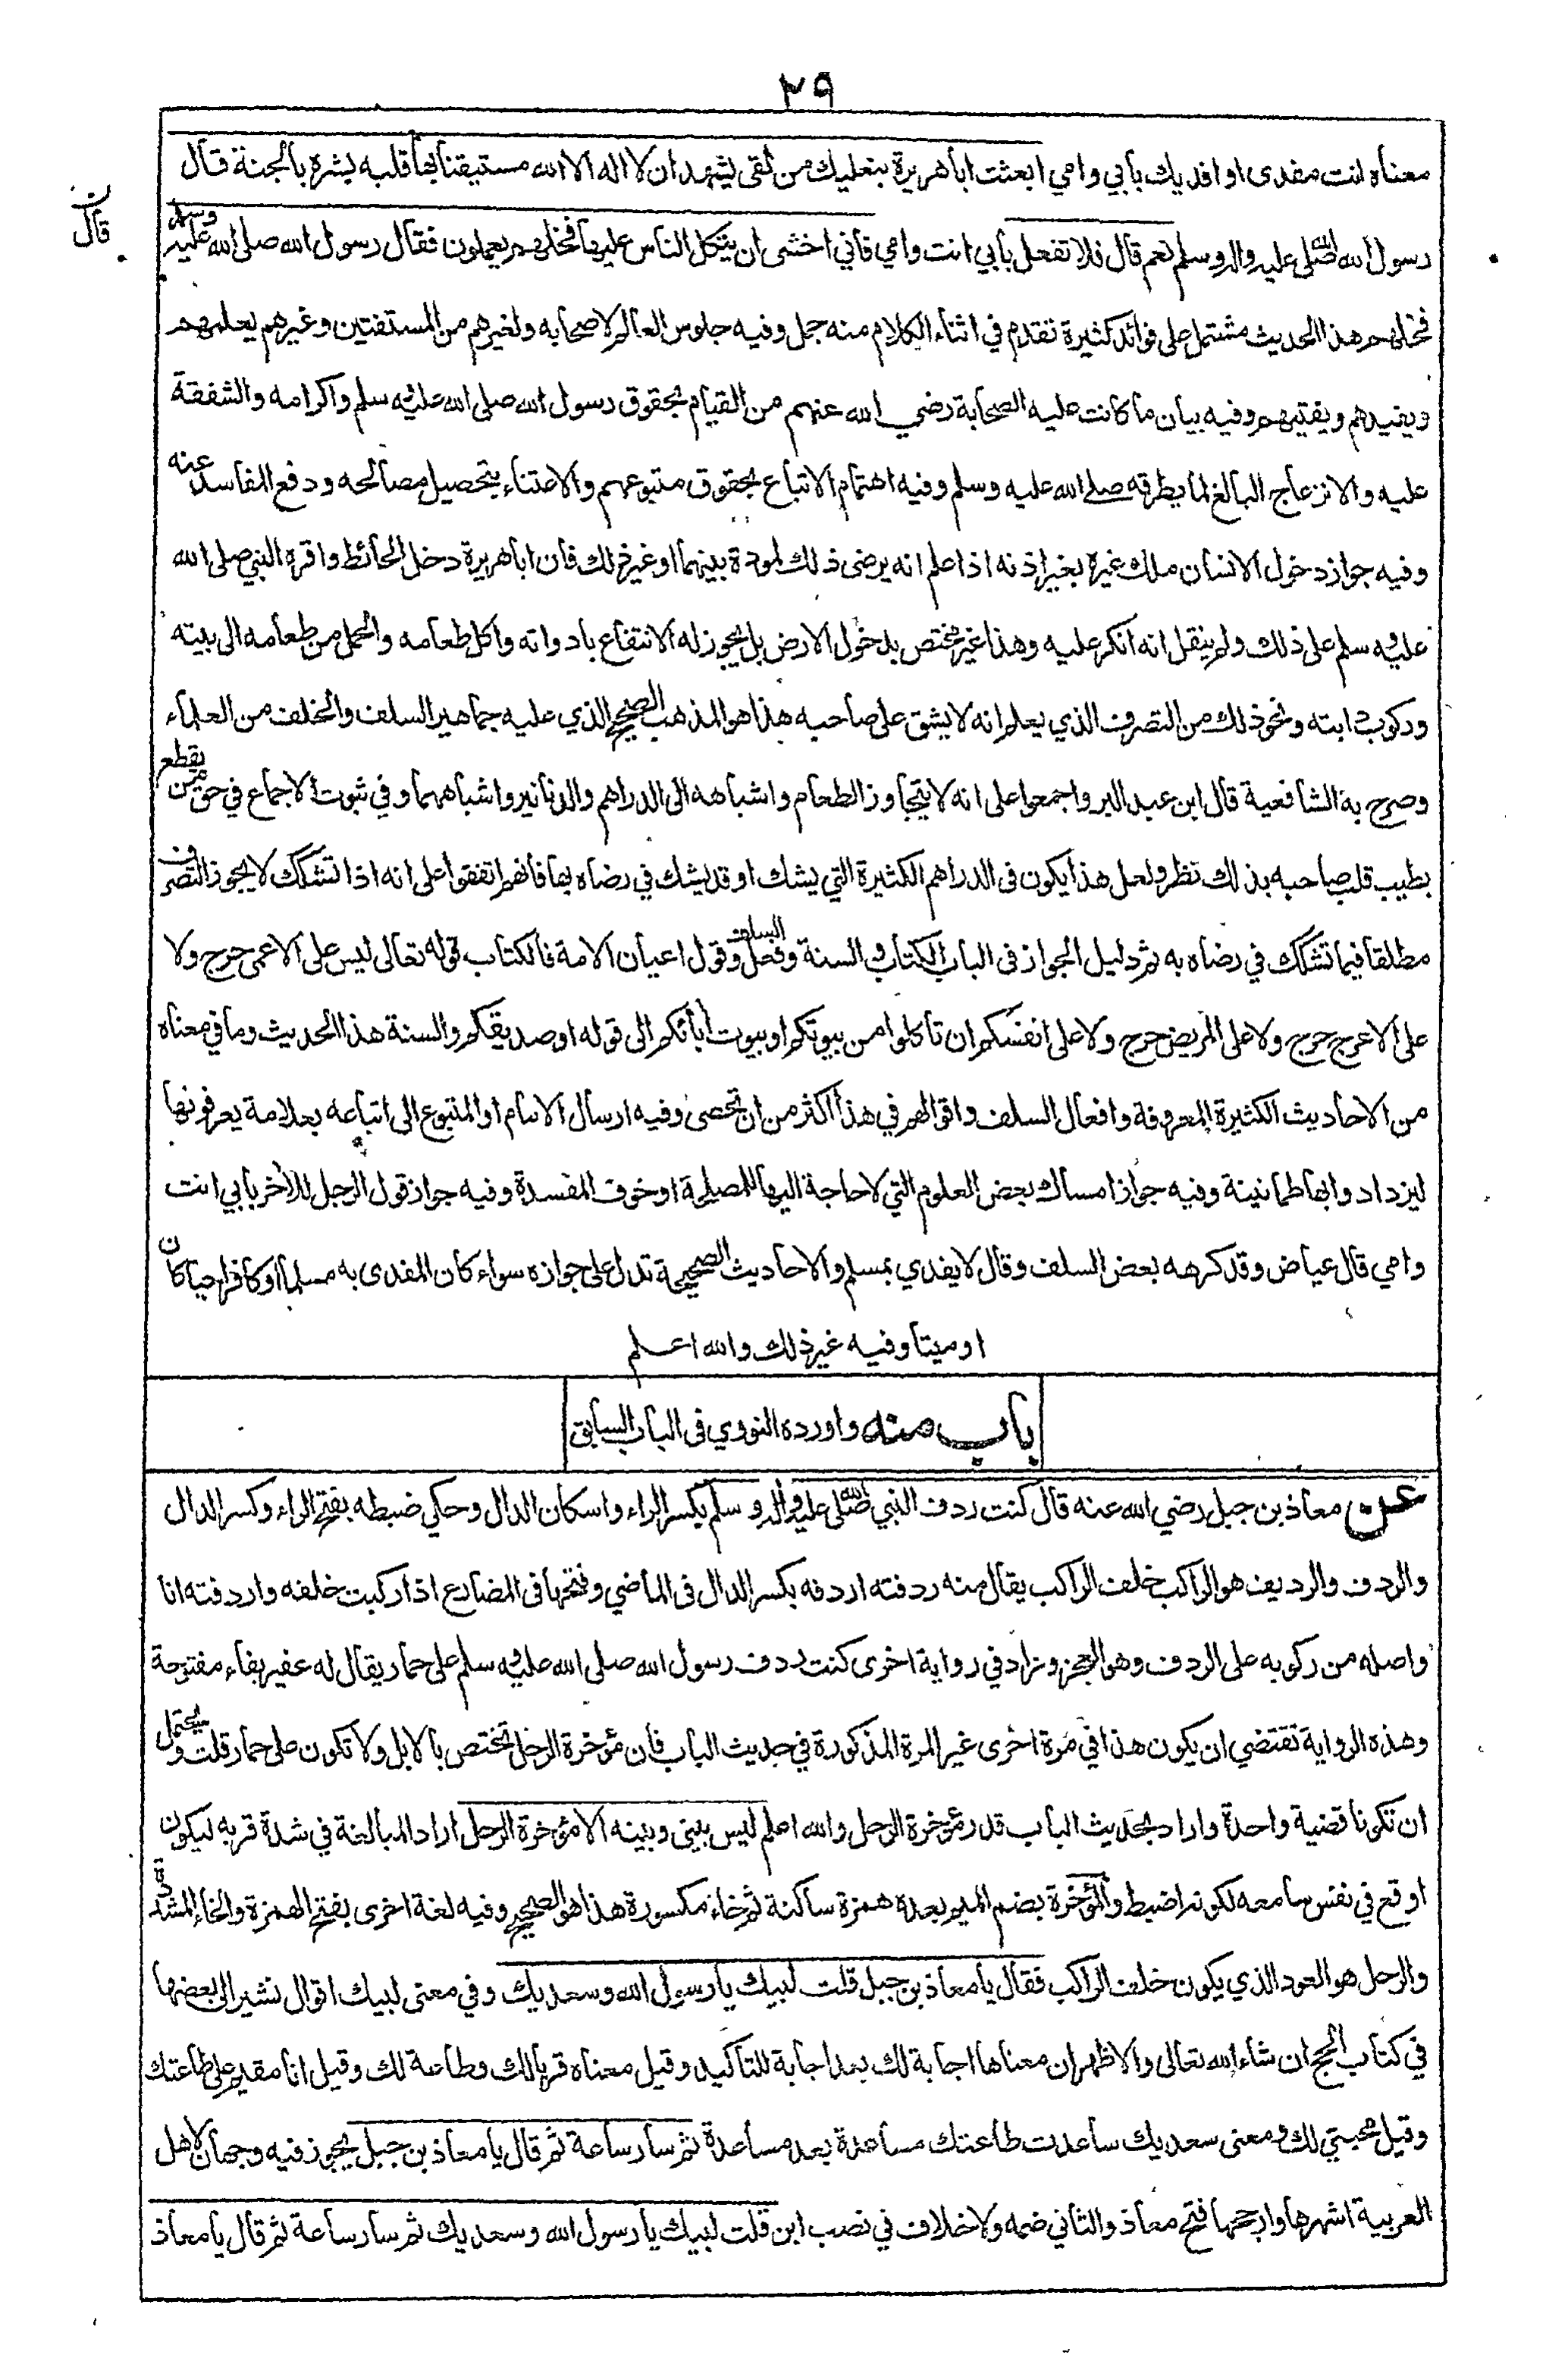 ٢٩
معناه انت مفدى او افديك بأبي وامي ابعثت اباهريرة بنعليك من لقى يشهد ان لا اله الا الله مستيقنا بها قلبه بشره بالجنة قال
رسول الله صلى الله عليه واله وسلم نعم قال فلا تفعل بأبي انت وامي فاني اخشى ان يتكل الناس عليها فخلهم يعملون فقال رسول الله صلى الله عليه وسلم
قال
فخلهم هذا الحديث مشتمل على فوائد كثيرة تقدم في اثناء الكلام منه جمل وفيه جلوس العالم لاصحابه ولغيرهم من المستفتين وغيرهم يعلمهم
ويفيدهم ويفتيهم وفيه بيان ما كانت عليه الصحابة رضي الله عنهم من القيام بحقوق رسول الله صلى الله عليه وسلم واكرامه والشفقة
عليه والانزعاج البالغ لما يطرقه صلى الله عليه وسلم وفيه اهتمام الاتباع بحقوق متبوعهم والاعتناء بتحصيل مصالحه ودفع المفاسد عنه
وفيه جواز دخول الانسان ملك غيره بغير اذنه اذا علم انه يرضى ذلك لمودة بينهما او غير ذلك فان اباهريرة دخل الحائط واقره النبي صلى الله
عليه وسلم على ذلك ولم ينقل انه انكر عليه وهذا غير مختص بدخول الارض بل يجوز له الانتفاع بادواته واكل طعامه والحمل من طعامه الى بيته
وركوب دابته ونحو ذلك من التصرف الذي يعلم انه لا يشق على صاحبه هذا هو المذهب الصحيح الذي عليه جماهير السلف والخلف من العلماء
وصرح به الشافعية قال ابن عبد البر واجمعوا على انه لا يتجاوز الطعام واشباهه الى الدراهم والدنانير واشباههما وفي ثبوت الاجماع في حق من يقطع
بطيب قلب صاحبه بذلك نظر ولعل هذا يكون فى الدراهم الكثيرة التي يشك او قد يشك في رضاه بها فانهم اتفقوا على انه اذا تشكك لا يجوز التصرف
مطلقا فيما تشكك في رضاه به ثم دليل الجواز فى الباب الكتاب والسنة وفعل السلف وقول اعيان الامة فالكتاب قوله تعالى ليس على الاعمى حرج ولا
على الاعرج حرج ولا على المريض حرج ولا على انفسكم ان تأكلوا من بيوتكم او بيوت أبائكم الى قوله او صديقكم والسنة هذا الحديث وما في معناه
من الاحاديث الكثيرة المعروفة وافعال السلف واقوالهم في هذا اكثر من ان تحصى وفيه ارسال الامام او المتبوع الى اتباعه بعلامة يعرفونها
ليزدادوا بها طمانينة وفيه جواز امساك بعض العلوم التي لا حاجة اليها للمصلحة او خوف المفسدة وفيه جواز قول الرجل للأخر بأبي انت
وامي قال عياض وقد كرهه بعض السلف وقال لا يفدي بمسلم والاحاديث الصحيحة تدل على جوازه سواء كان المفدى به مسلما او كافرا حيا كان
او ميتا وفيه غير ذلك والله اعلم
باب منه واورده النووي فى الباب السابق
عن معاذ بن جبل رضي الله عنه قال كنت ردف النبي صلى الله عليه واله وسلم بكسر الراء واسكان الدال وحكي ضبطه بفتح الراء وكسر الدال
والردف والرديف هو الراكب خلف الراكب يقال منه ردفته اردفه بكسر الدال فى الماضي وفتحها فى المضارع اذا ركبت خلفه واردفته انا
واصله من ركوبه على الردف وهو العجز وزاد في رواية اخرى كنت ردف رسول الله صلى الله عليه وسلم على حمار يقال له عفير بفاء مفتوحة
وهذه الرواية تقتضي ان يكون هذا في مرة اخرى غير المرة المذكورة في حديث الباب فان مؤخرة الرحل تختص بالابل ولا تكون على حمار قلت ويحتمل
ان تكونا قضية واحدة واراد بحديث الباب قدر مؤخرة الرحل والله اعلم ليس بيني وبينه الا مؤخرة الرحل اراد المبالغة في شدة قربه ليكون
اوقع في نفس سامعه لكونه اضبط والمؤخرة بضم الميم بعده همزة ساكنة ثم خاء مكسورة هذا هو الصحيح وفيه لغة اخرى بفتح الهمزة والخاء المشددة
والرحل هو العود الذي يكون خلف الراكب فقال يا معاذ بن جبل قلت لبيك يا رسول الله وسعديك وفي معنى لبيك اقوال نشير الى بعضها
في كتاب الحج ان شاء الله تعالى والاظهر ان معناها اجابة لك بعد اجابة للتأكيد وقيل معناه قربا لك وطاعة لك وقيل انا مقيم على طاعتك
وقيل محبتي لك ومعنى سعديك ساعدت طاعتك مساعدة بعد مساعدة ثم سار ساعة ثم قال يا معاذ بن جبل يجوز فيه وجهان لاهل
العربية اشهرها وارجحها فتح معاذ والثاني ضمه ولا خلاف في نصب ابن قلت لبيك يا رسول الله وسعديك ثم سار ساعة ثم قال يا معاذ